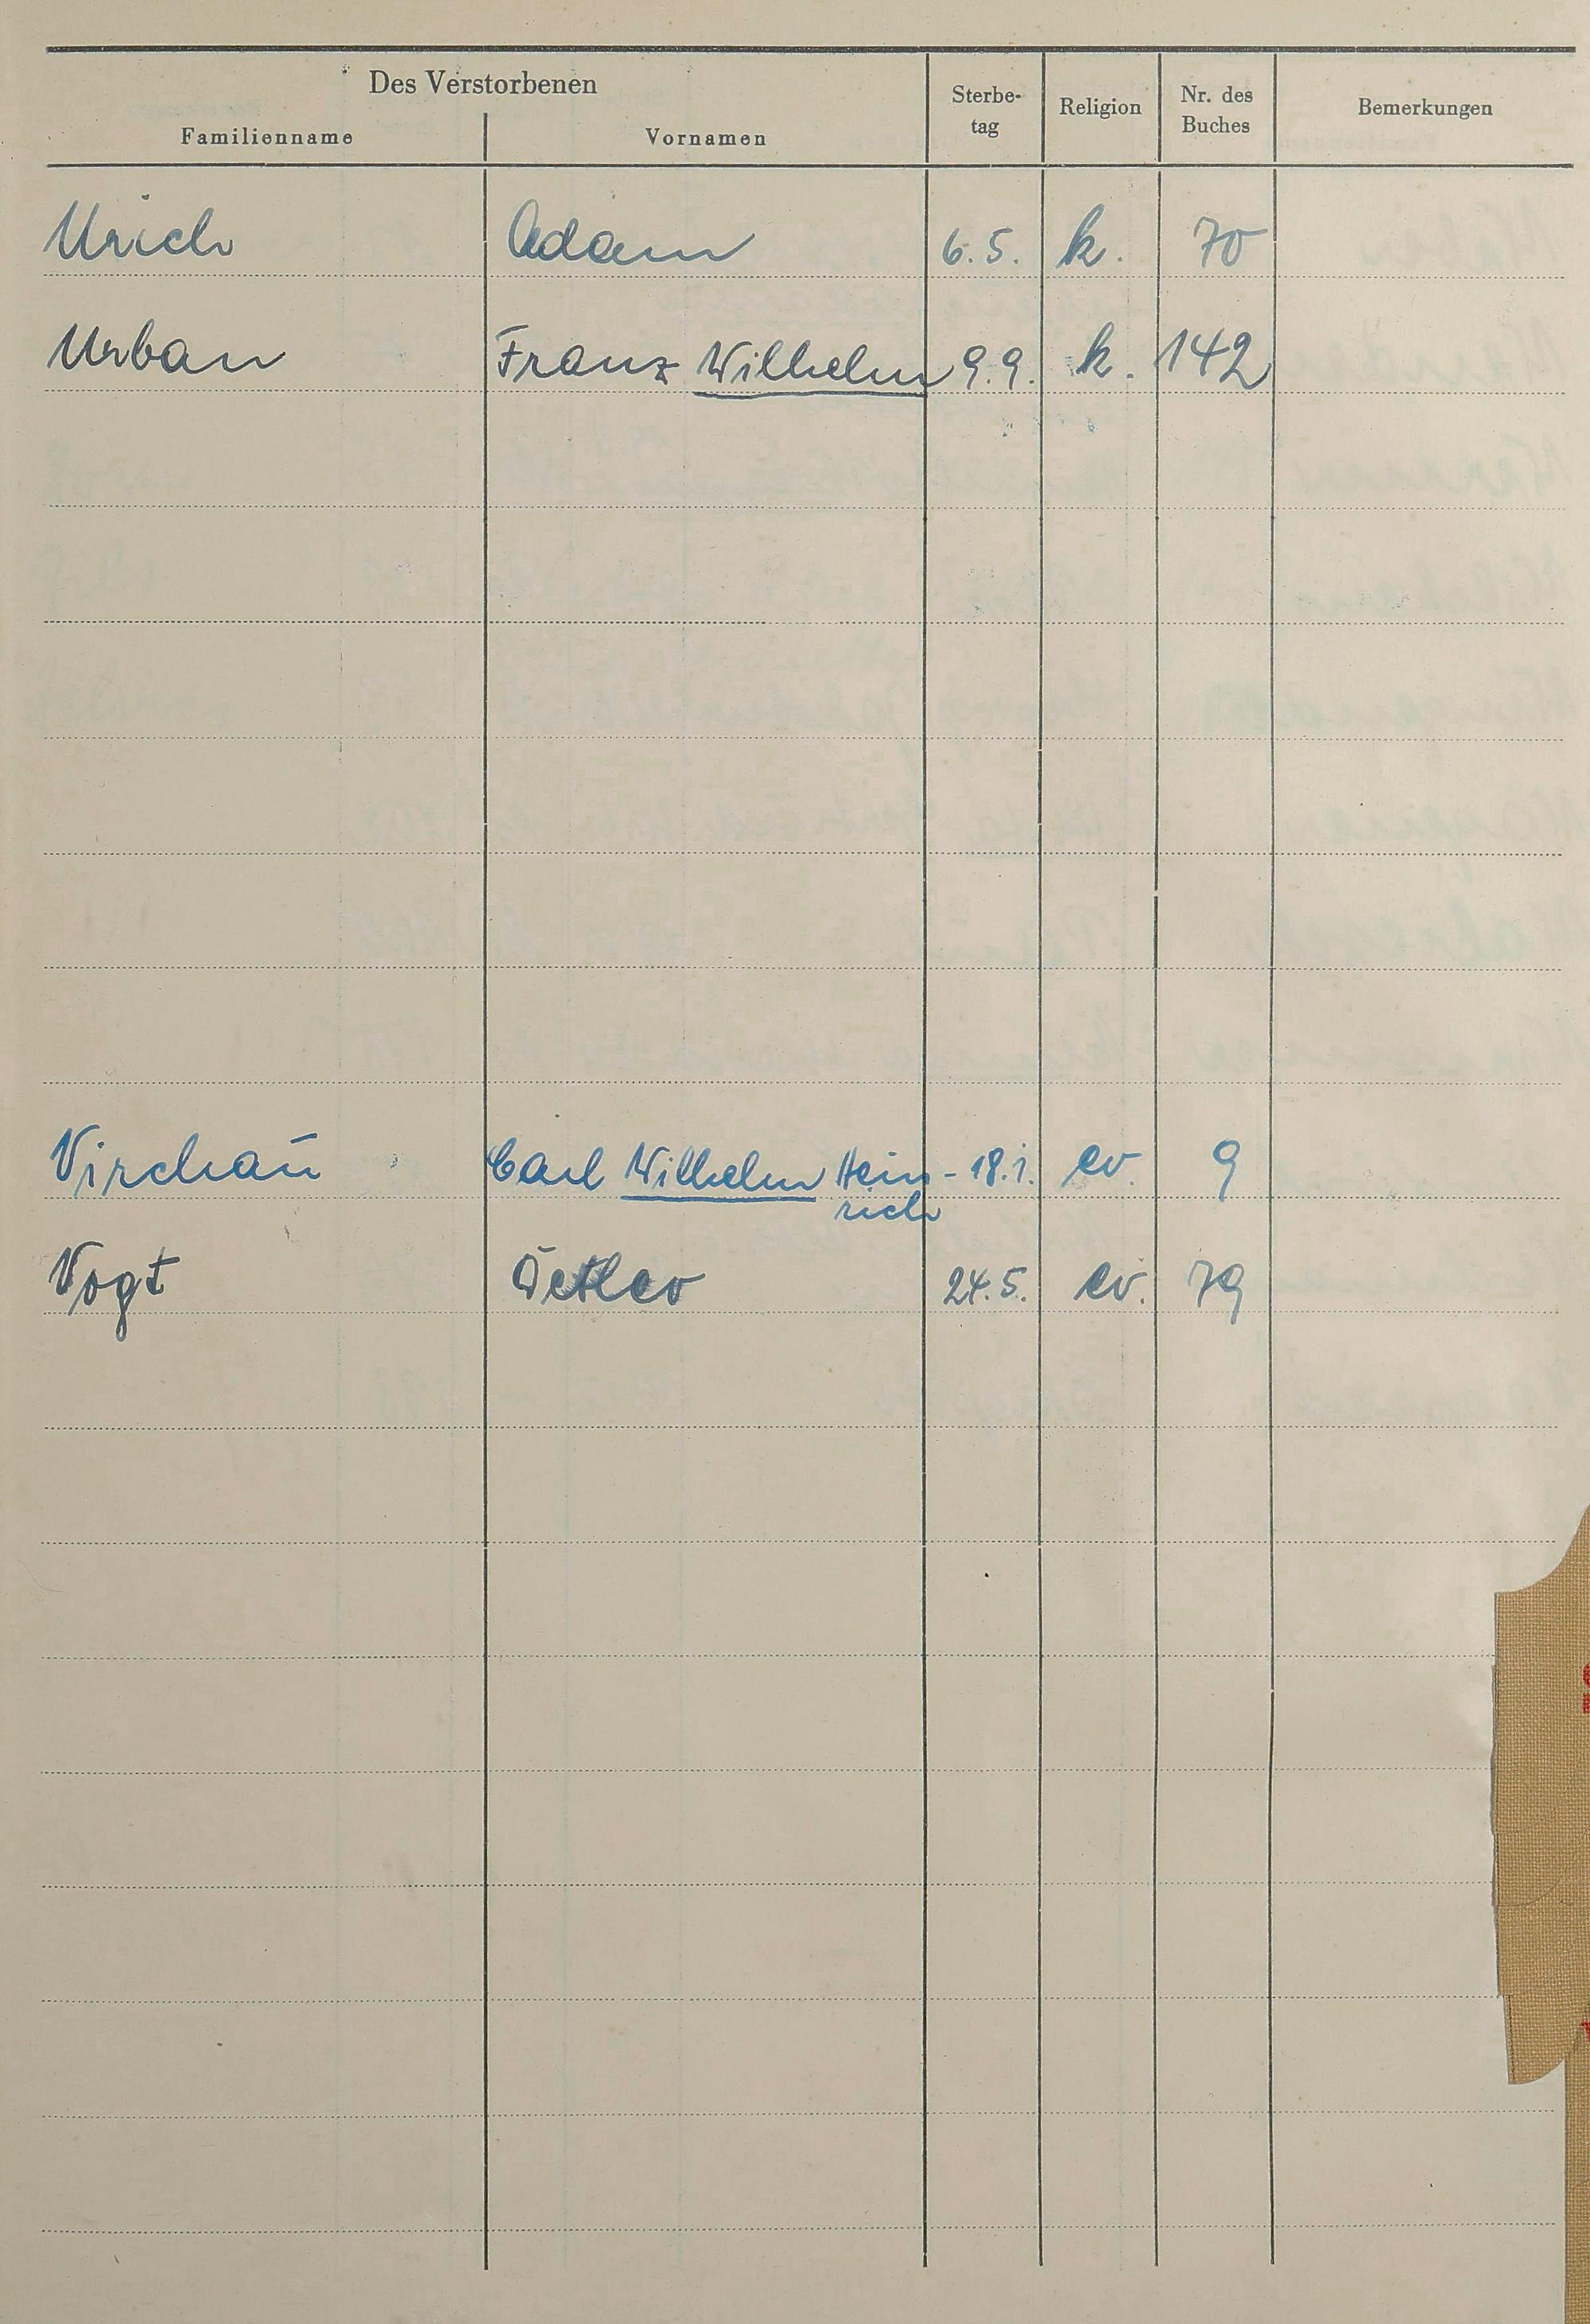 Des Verstorbenen
Familienname Vornamen Sterbe-tag Religion Nr. des Buches Bemerkungen
Urich Adam 6.5. k. 70
Urban Franz Wilhelm 9.9. k. 142
Virchau Carl Wilhelm Hein- 18.1. ev. 9
rich
Vogt Detlev 24.5. ev. 79